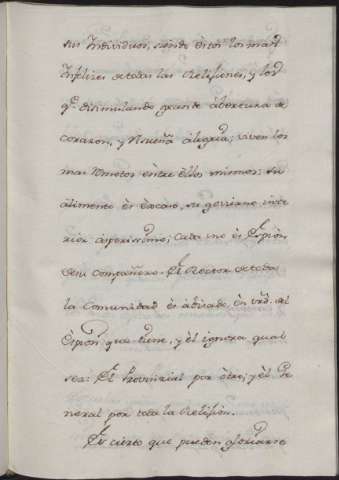 sus Individuos, siendo éstos los mas
Infelizes de todas las Religiones, y los
q.e disimulando grande abertura de
corazon, y risueña alegria, viven los
mas remotos entre ellos mismos: su
alimento és escaso, su govierno inte
rior asperissimo; Cada uno és Espión,
de su compañero. El Rector de toda
la Comunidad és abisado, en vrd. del
Espion que tiene, y él ignora qual
sea: El Provincial por ótro; y él Ge
neral por toda la Religión.
Es cierto que pueden gloriarse